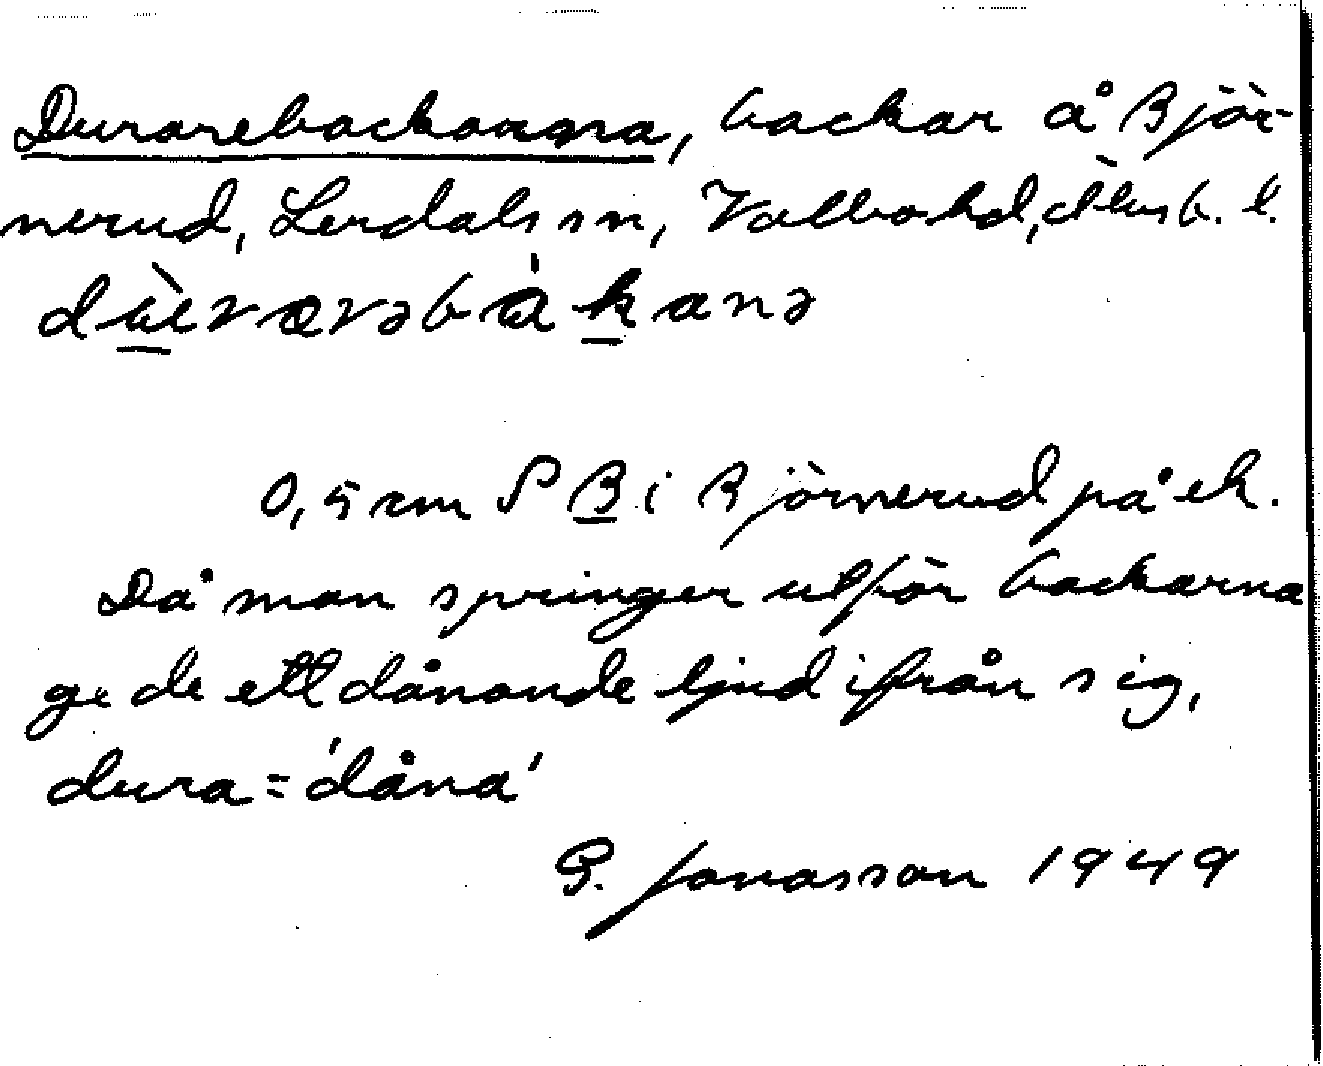 Durarebackarna, backar å Björ-
nerud, Lerdals sn, Valbo hd, Älvsb. l.
0,5 cm S B i Björnerud på ek.
Då man springer utför backarna
ge de ett dånande ljud ifrån sig,
dura = 'dåna'
G. Jonasson 1949